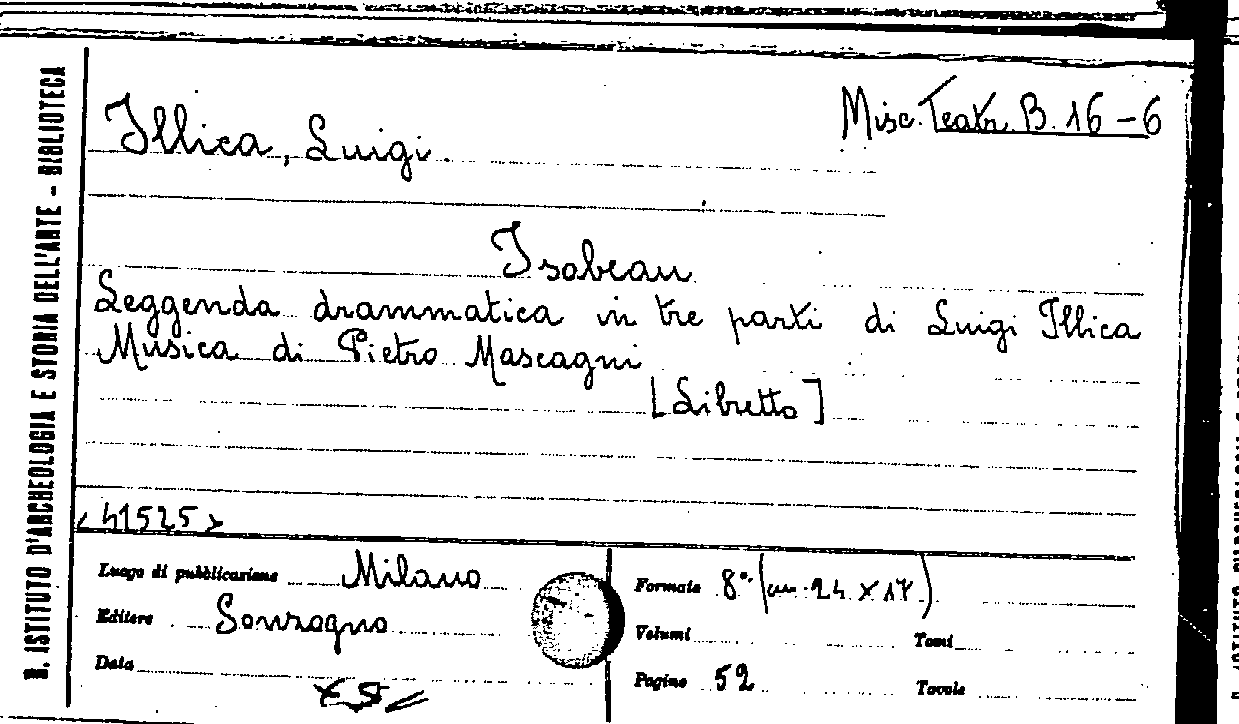 R. ISTITUTO D'ARCHEOLOGIA E STORIA DELL'ARTE - BIBLIOTECA
Misc. Teatr. B. 16-6
Illica, Luigi.
Isabeau
Leggenda drammatica in tre parti di Luigi Illica
Musica di Pietro Mascagni
[Libretto]
<41525>
Luogo di pubblicazione Milano
Editore Sonzogno
Data
Formato 8° (cm. 24 x 17)
Volumi Tomi
Pagine 52 Tavole